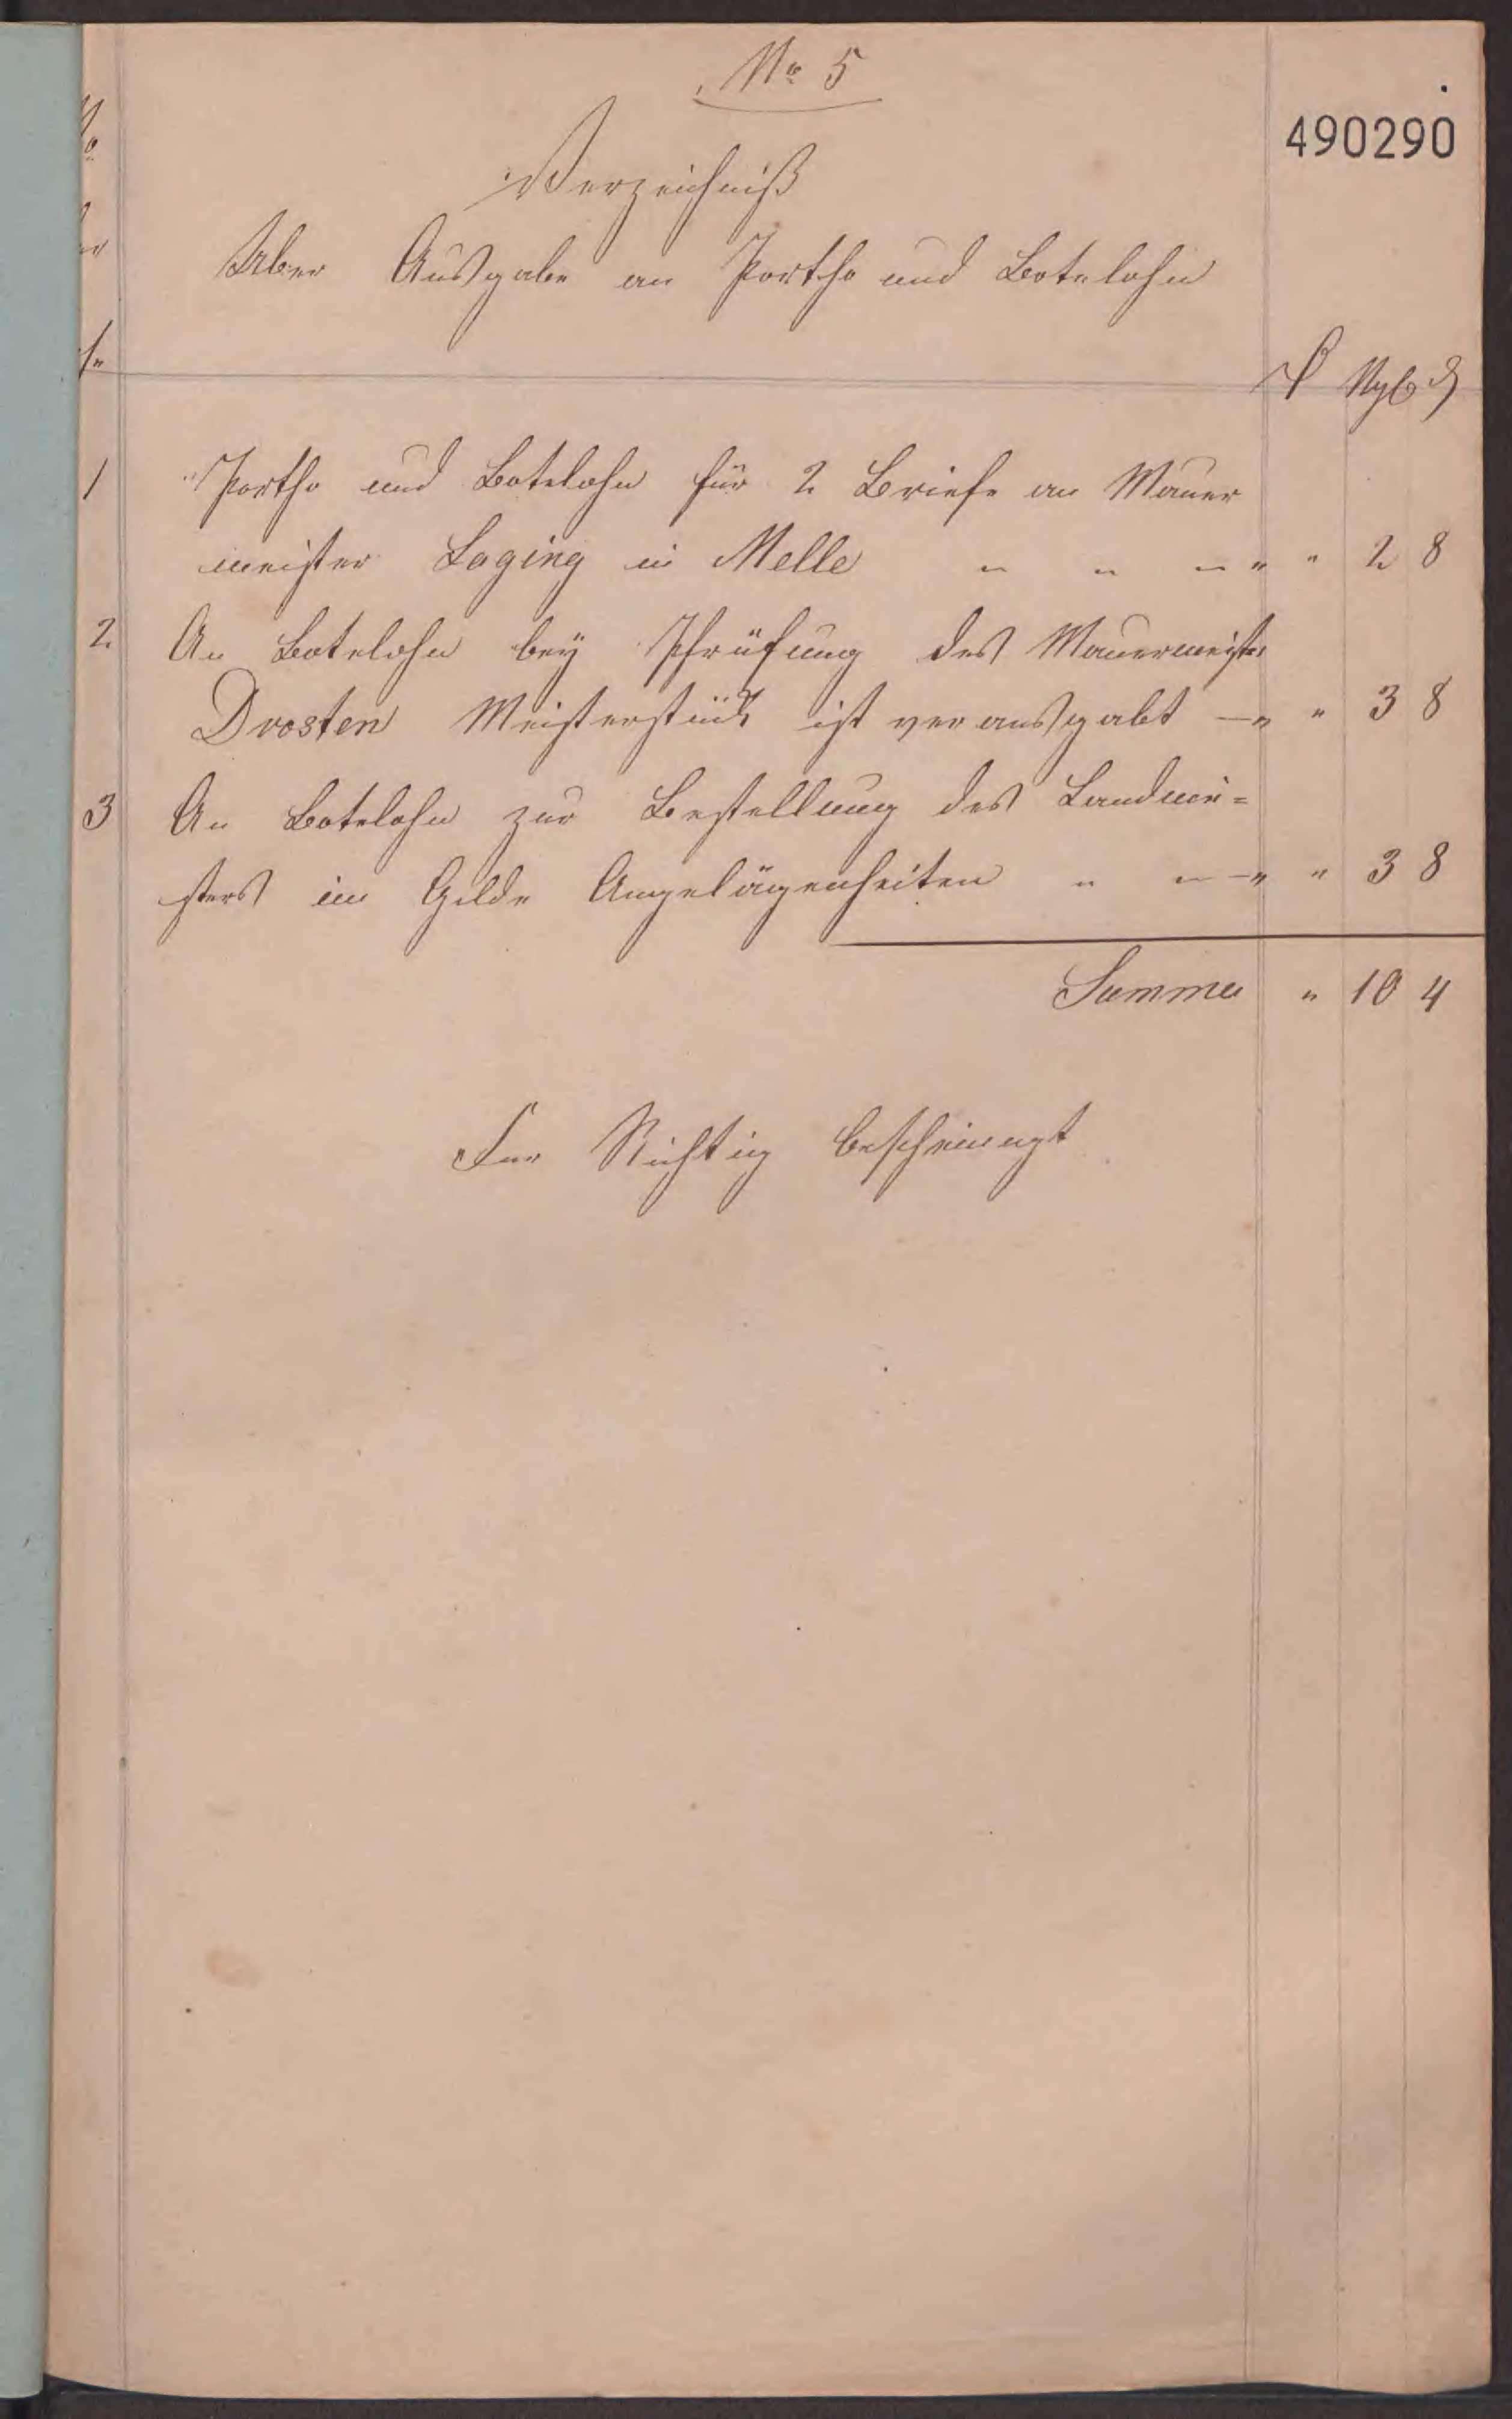 No 5
490290
Verzeichniß
Über Ausgabe an Portho und Botelohn
Ngl d
1 Portho und Botelohn für 2 Briefe an Mauer
meister Loging in Melle " " " " " 2 8
2 An Botelohn bey Phrüfung des Mauermeister
Drosten Meisterstück ist verausgabt — " " 3 8
3 An Botelohn zur Bestellung des Landmei=
sters im Gilde Angelägenheiten " " — " " 3 8
Summa " 10 4
Fur Richtig bescheinugt